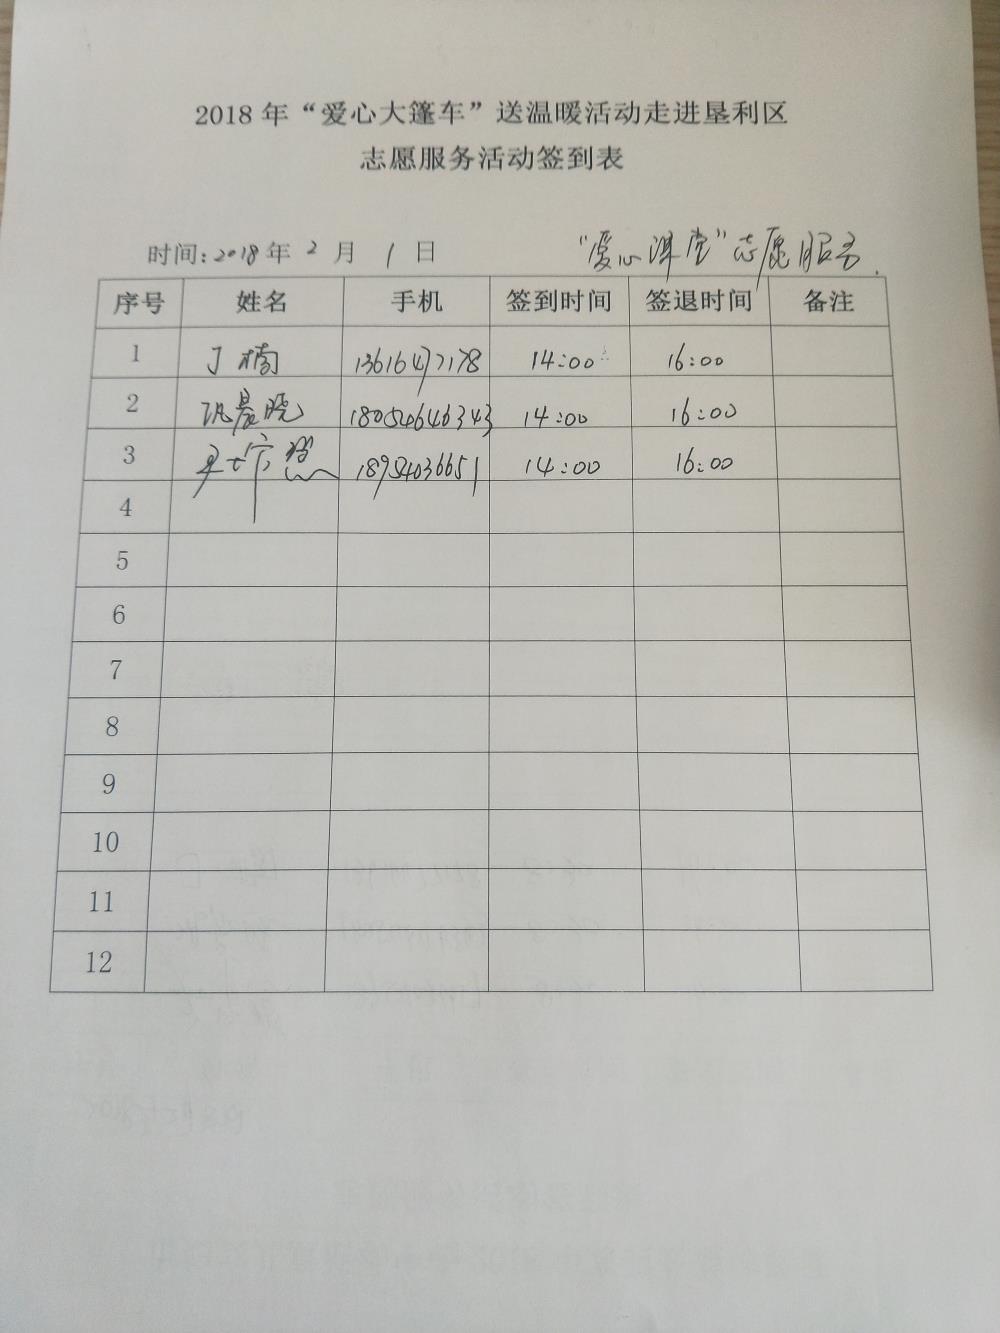 2018 年 “爱心大篷车” 送温暖活动走进垦利区
志愿服务活动签到表
时间: 2018 年 2 月 1 日 “爱心课堂”志愿服务
序号 姓名 手机 签到时间 签退时间 备注
1 丁楠 13616477178 14:00 16:00
2 巩晨晓 18054646343 14:00 16:00
3 18954036651 14:00 16:00
4
5
6
7
8
9
10
11
12